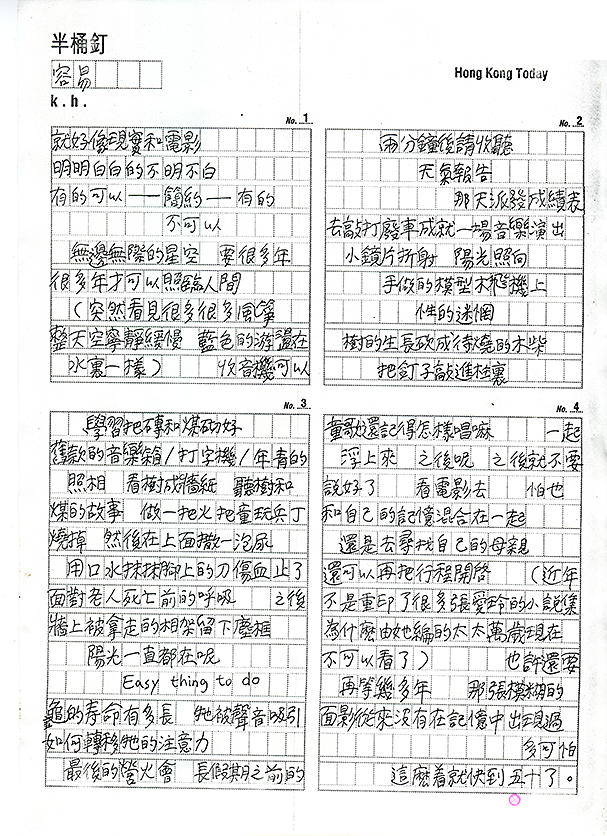 半桶釘
容易
Hong Kong Today
k.h.
No. 1
就好像現實和電影
明明白白的不明不白
有的可以——簡約——有的
不可以
無邊無際的星空 要很多年
很多年才可以照臨人間
(突然看見很多很多風箏
整天空寧靜緩慢 藍色的游盪在
水裏一樣) 收音機可以
No. 2
兩分鐘後請收聽
天氣報告
那天派發成績表
去敲打廢車成就一場音樂演出
小鏡片折射 陽光照向
手做的模型木飛機上
性的迷惘
樹的生長砍成待燒的木柴
把釘子敲進柱裏
No. 3
學習把磚和煤砌好
舊款的音樂箱/打字機/年青的
照相 看樹成牆紙 聽樹和
煤的故事 做一把火把童玩兵丁
燒掉 然後在上面撒一泡尿
用口水抹抹腳上的刀傷血止了
面對老人死亡前的呼吸 之後
牆上被拿走的相架留下塵框
陽光一直都在呢
Easy thing to do
龜的寿命有多長 牠被聲音吸引
如何轉移牠的注意力
最後的營火會 長假期之前的
No. 4
童歌還記得怎樣唱嘛 一起
浮上來 之後呢 之後就不要
說好了 看電影去 怕也
和自己的記憶混合在一起
還是去尋找自己的母親
還可以再把行程開啓 (近年
不是重印了很多張愛玲的小說集
為什麼由她編的太太萬歲現在
不可以看了) 也許還要
再等幾多年 那張模糊的
面影從來沒有在記憶中出現過
多可怕
這麼着就快到五十了。